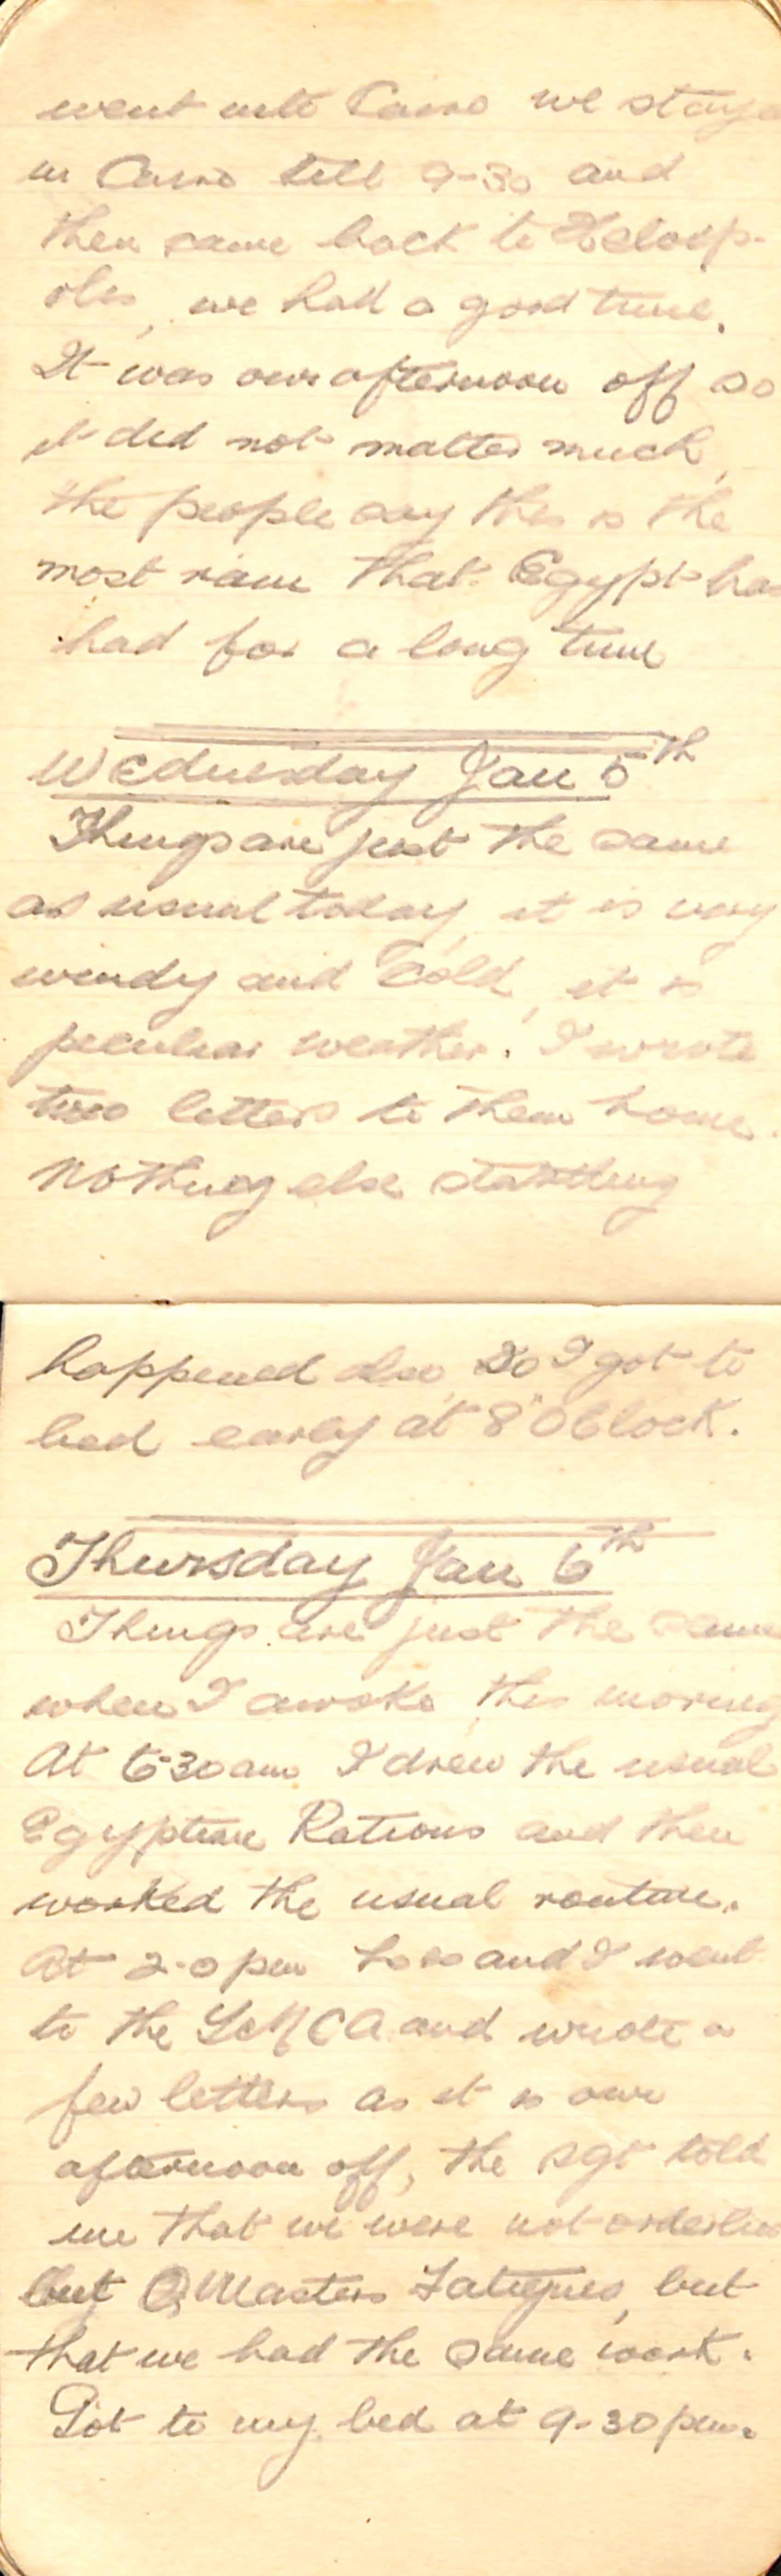 went into Cairo we staye
in Cairo till 9-30 and
then came back to Heliop-
olis, we had a good time.
It was our afternoon off so
it did not matter much,
the people say this is the
most rain that Egypt has
had for a long time
Wednesday Jan 5th
Things are just the same
as usual today, it is very
windy and cold, it is
peculiar weather. I wrote
two letters to them home.
Nothing else startling
happened also, So I got to
bed early at 8 "OClock.
Thursday Jan 6th
Things are just the same
when I awoke this moring
At 6-30am I drew the usual
Egyptian Rations and then
worked the usual routine.
At 2-0 pm and I went
to the YMCA and wrote a
few letters as it is our
afternoon off, the Sgt told
me that we were not orderlies
but Q Masters Fatigues, but
that we had the same work.
Got to my bed at 9-30 pm.